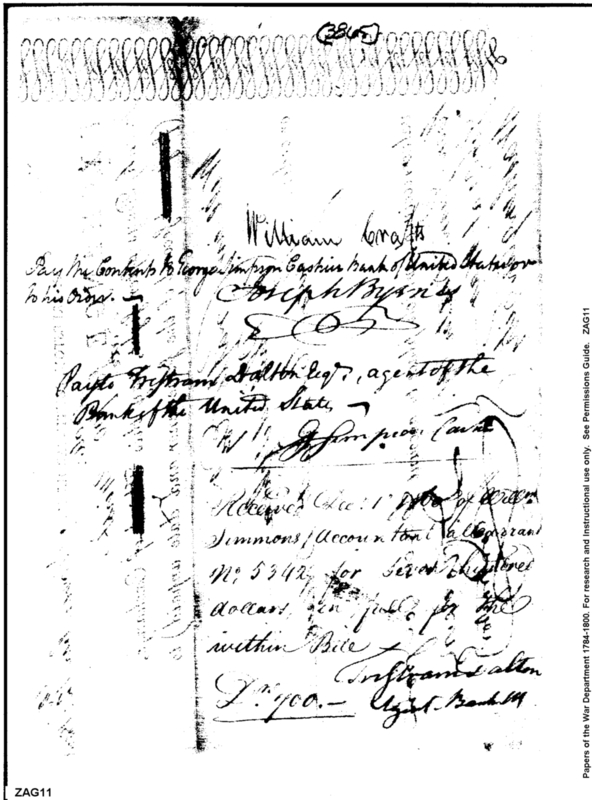 (3865)
William Crafts
Pay the Contents to George Simpson Cashier Bank of United States or
to his Order. —
Joseph Byrns
Pay to Tristram Dalton Esqr., agent of the
Bank of the United States —
G Simpson Cash
Received Dec: 1 of Willm
Simmons Accountant a Warrant
No. 5342 for Seven hundred
dollars in full for the
within Bill
Tristram Dalton
Drs. 700. —
Agent Bank US
Papers of the War Department 1784-1800. For research and instructional use only. See Permissions Guide. ZAG11
ZAG11